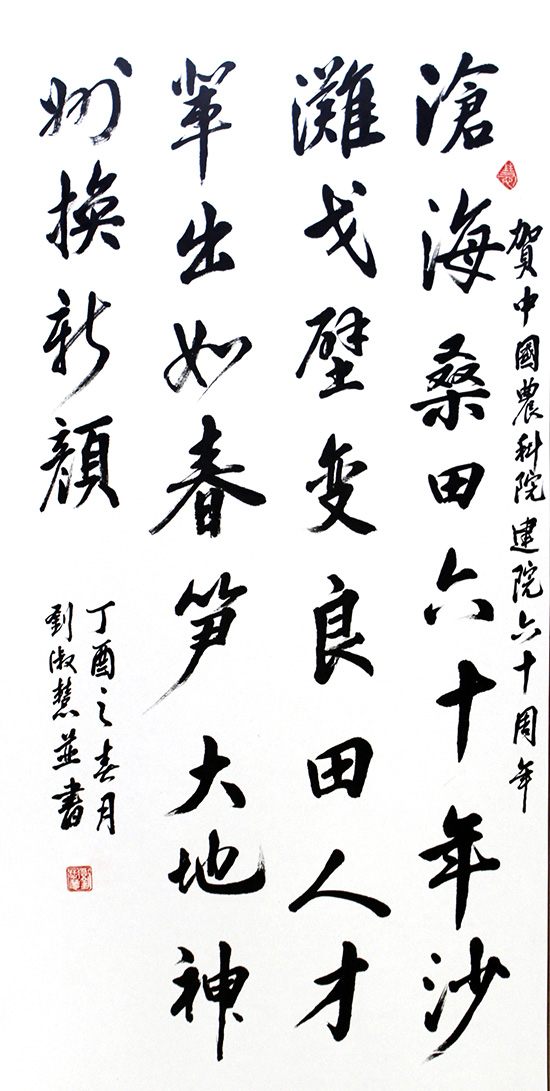 賀中國農科院建院六十周年
滄海桑田六十年沙
灘戈壁变良田人才
輩出如春笋大地神
州換新顏
丁酉之春月
劉淑慧並書